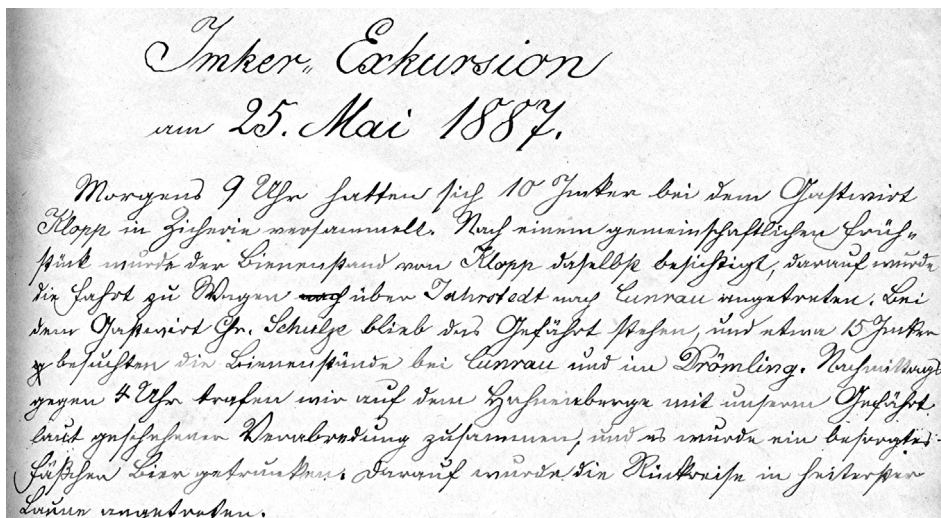 Imker-Exkursion
am 25. Mai 1887.
Morgens 9 Uhr hatten sich 10 Imker bei dem Gastwirt
Klopp in Zicherie versammelt. Nach einem gemeinschaftlichen Früh-
stück wurde der Bienenstand von Klopp daselbst besichtigt, darauf wurde
die Fahrt zu Wagen nach über Jahrstedt nach Cunrau angetreten. Bei
dem Gastwirt Chr. Schulze blieb das Gefährt stehen, und etwa 15 Imker
besuchten die Bienenstände bei Cunrau und im Drömling. Nachmittags
gegen 4 Uhr trafen wir auf dem Hahnenberge mit unserm Gefährt
laut geschehener Verabredung zusammen, und es wurde ein besorgtes
Fäßchen Bier getrunken. Darauf wurde die Rückreise in heiterster
Laune angetreten.